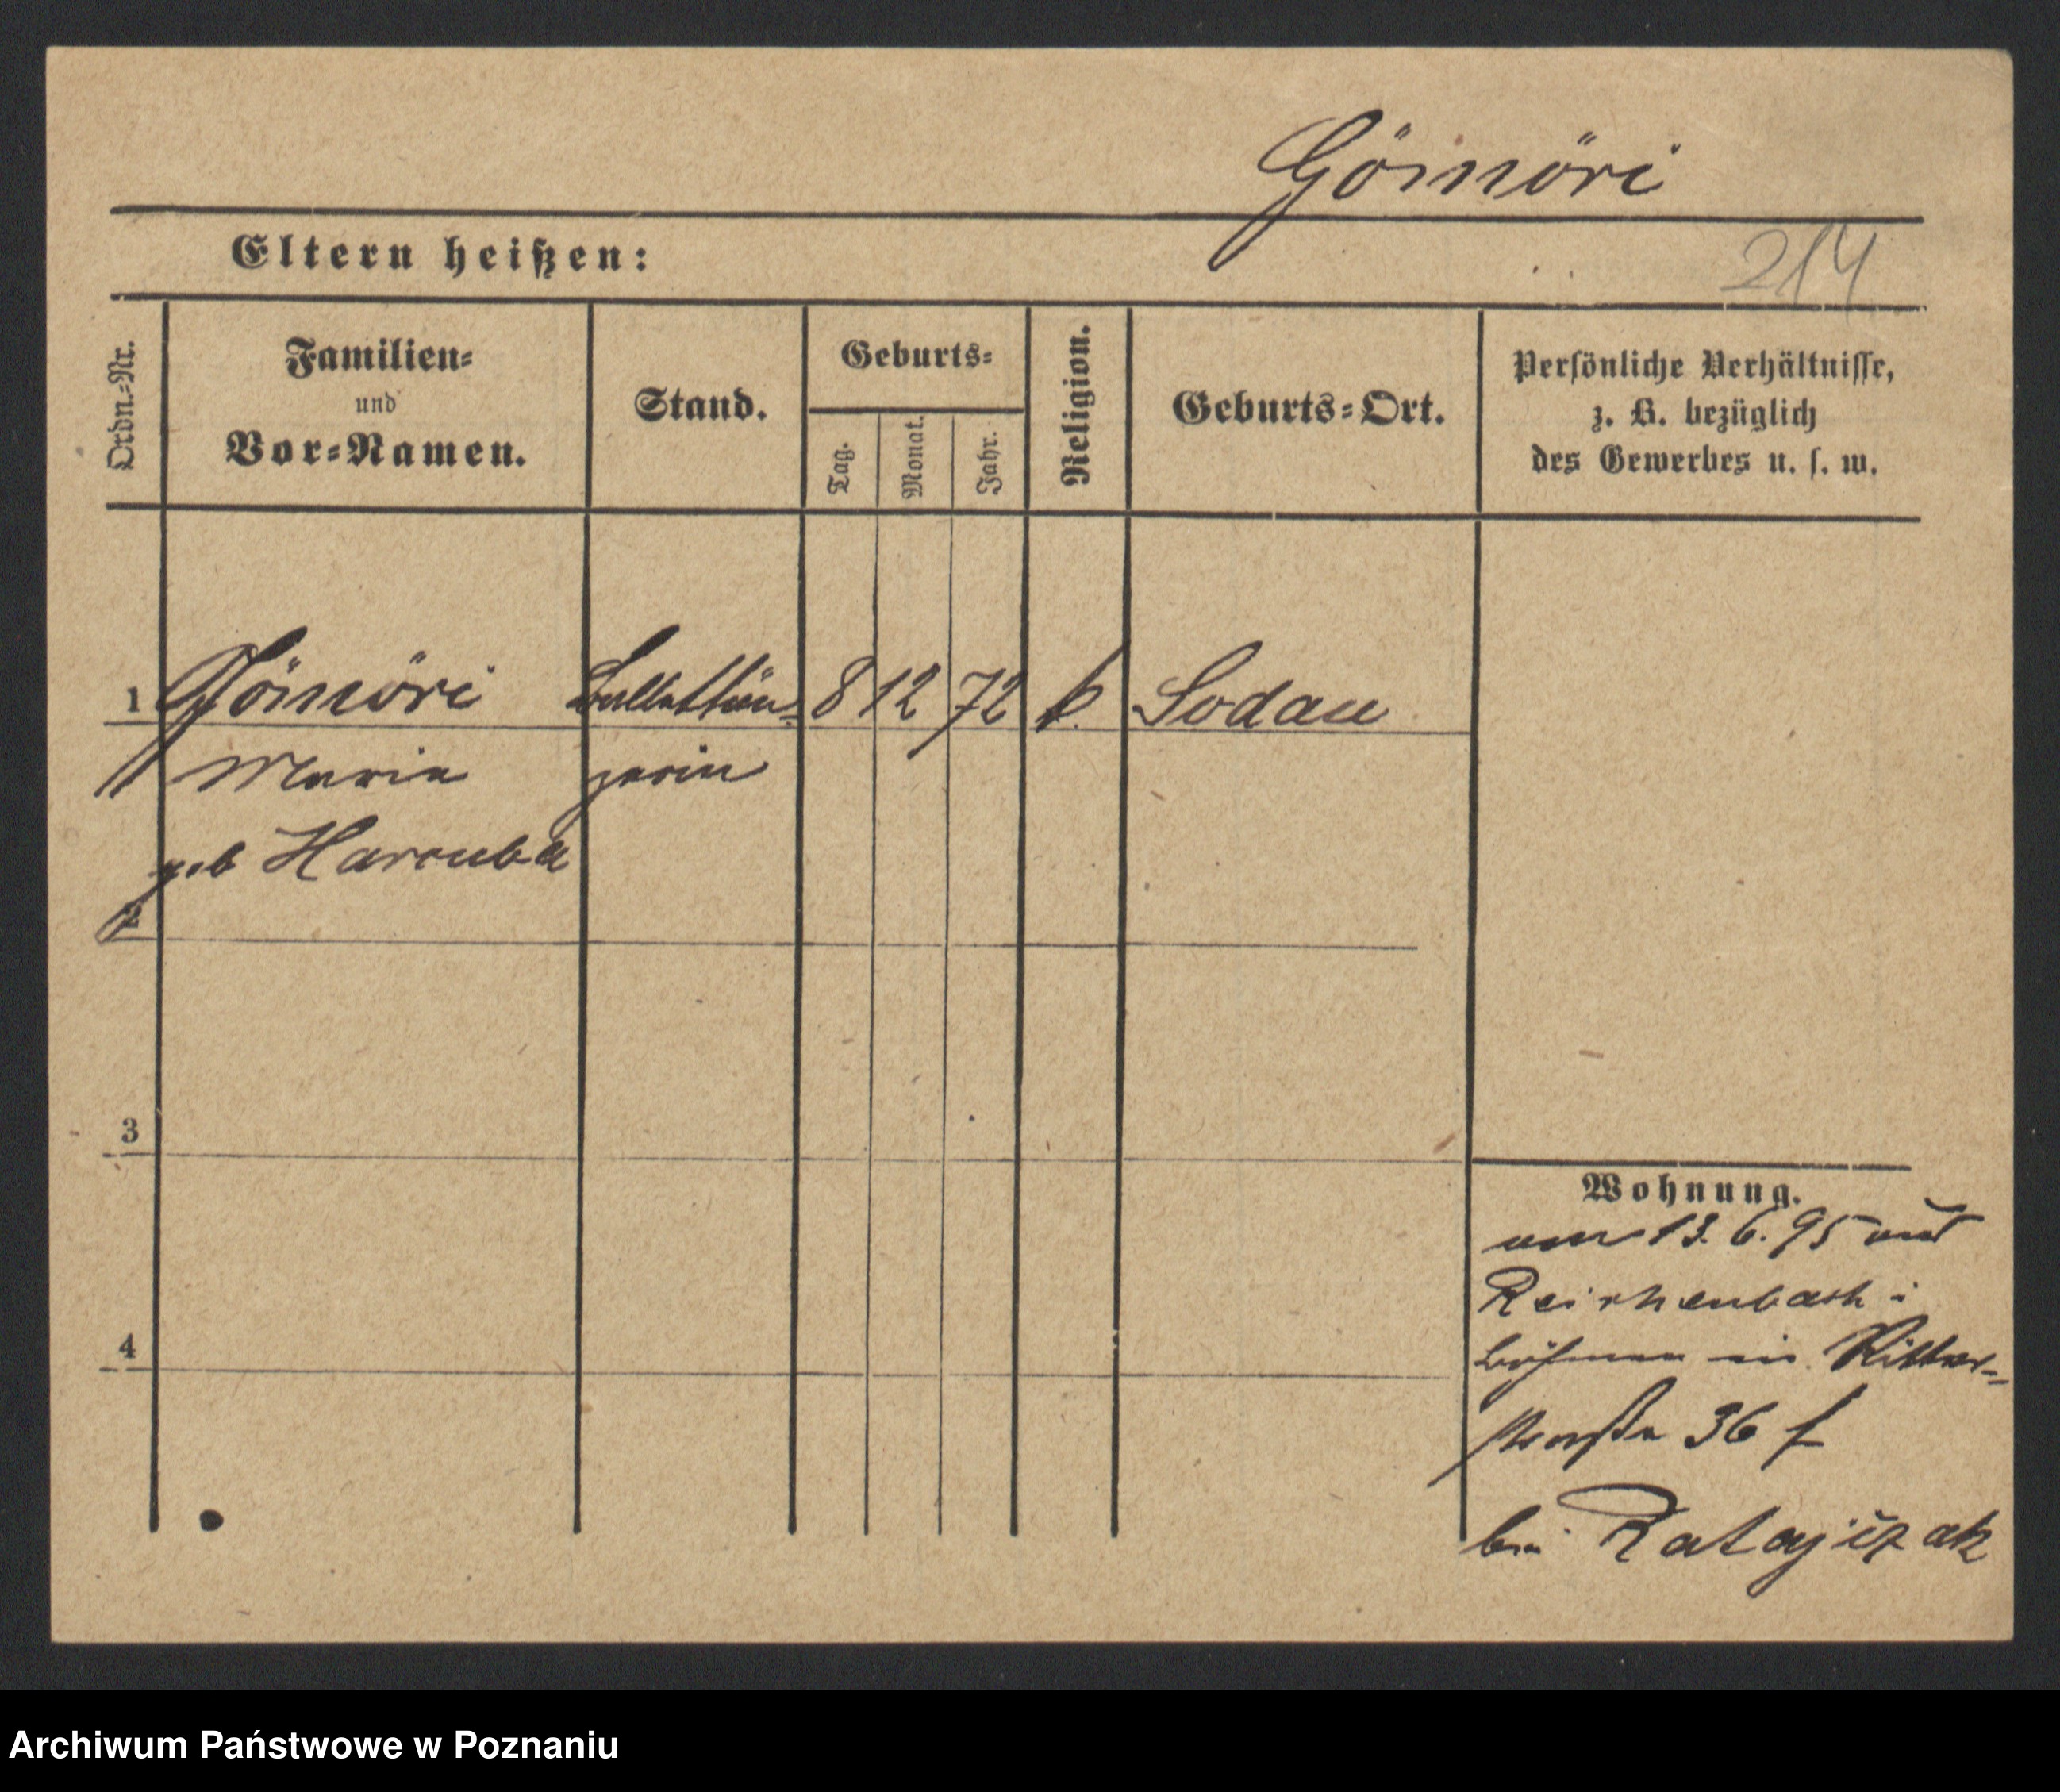 Gömöri
Eltern heißen:
214
Ordn.=Nr.
Familien=
und
Vor=Namen.
Stand.
Geburts=
Tag.
Monat.
Jahr.
Religion.
Geburts=Ort.
Persönliche Verhältnisse,
z. B. bezüglich
des Gewerbes u. s. w.
1 Gömöri Ballettän= 8 12 72 k. Sodau
Maria zerin
geb Harouba
2
3
4
Wohnung.
am 13. 6. 95 aus
Reichenbach i
Böhmen in Ritter=
straße 36 f
bei Ratajczak
Archiwum Państwowe w Poznaniu